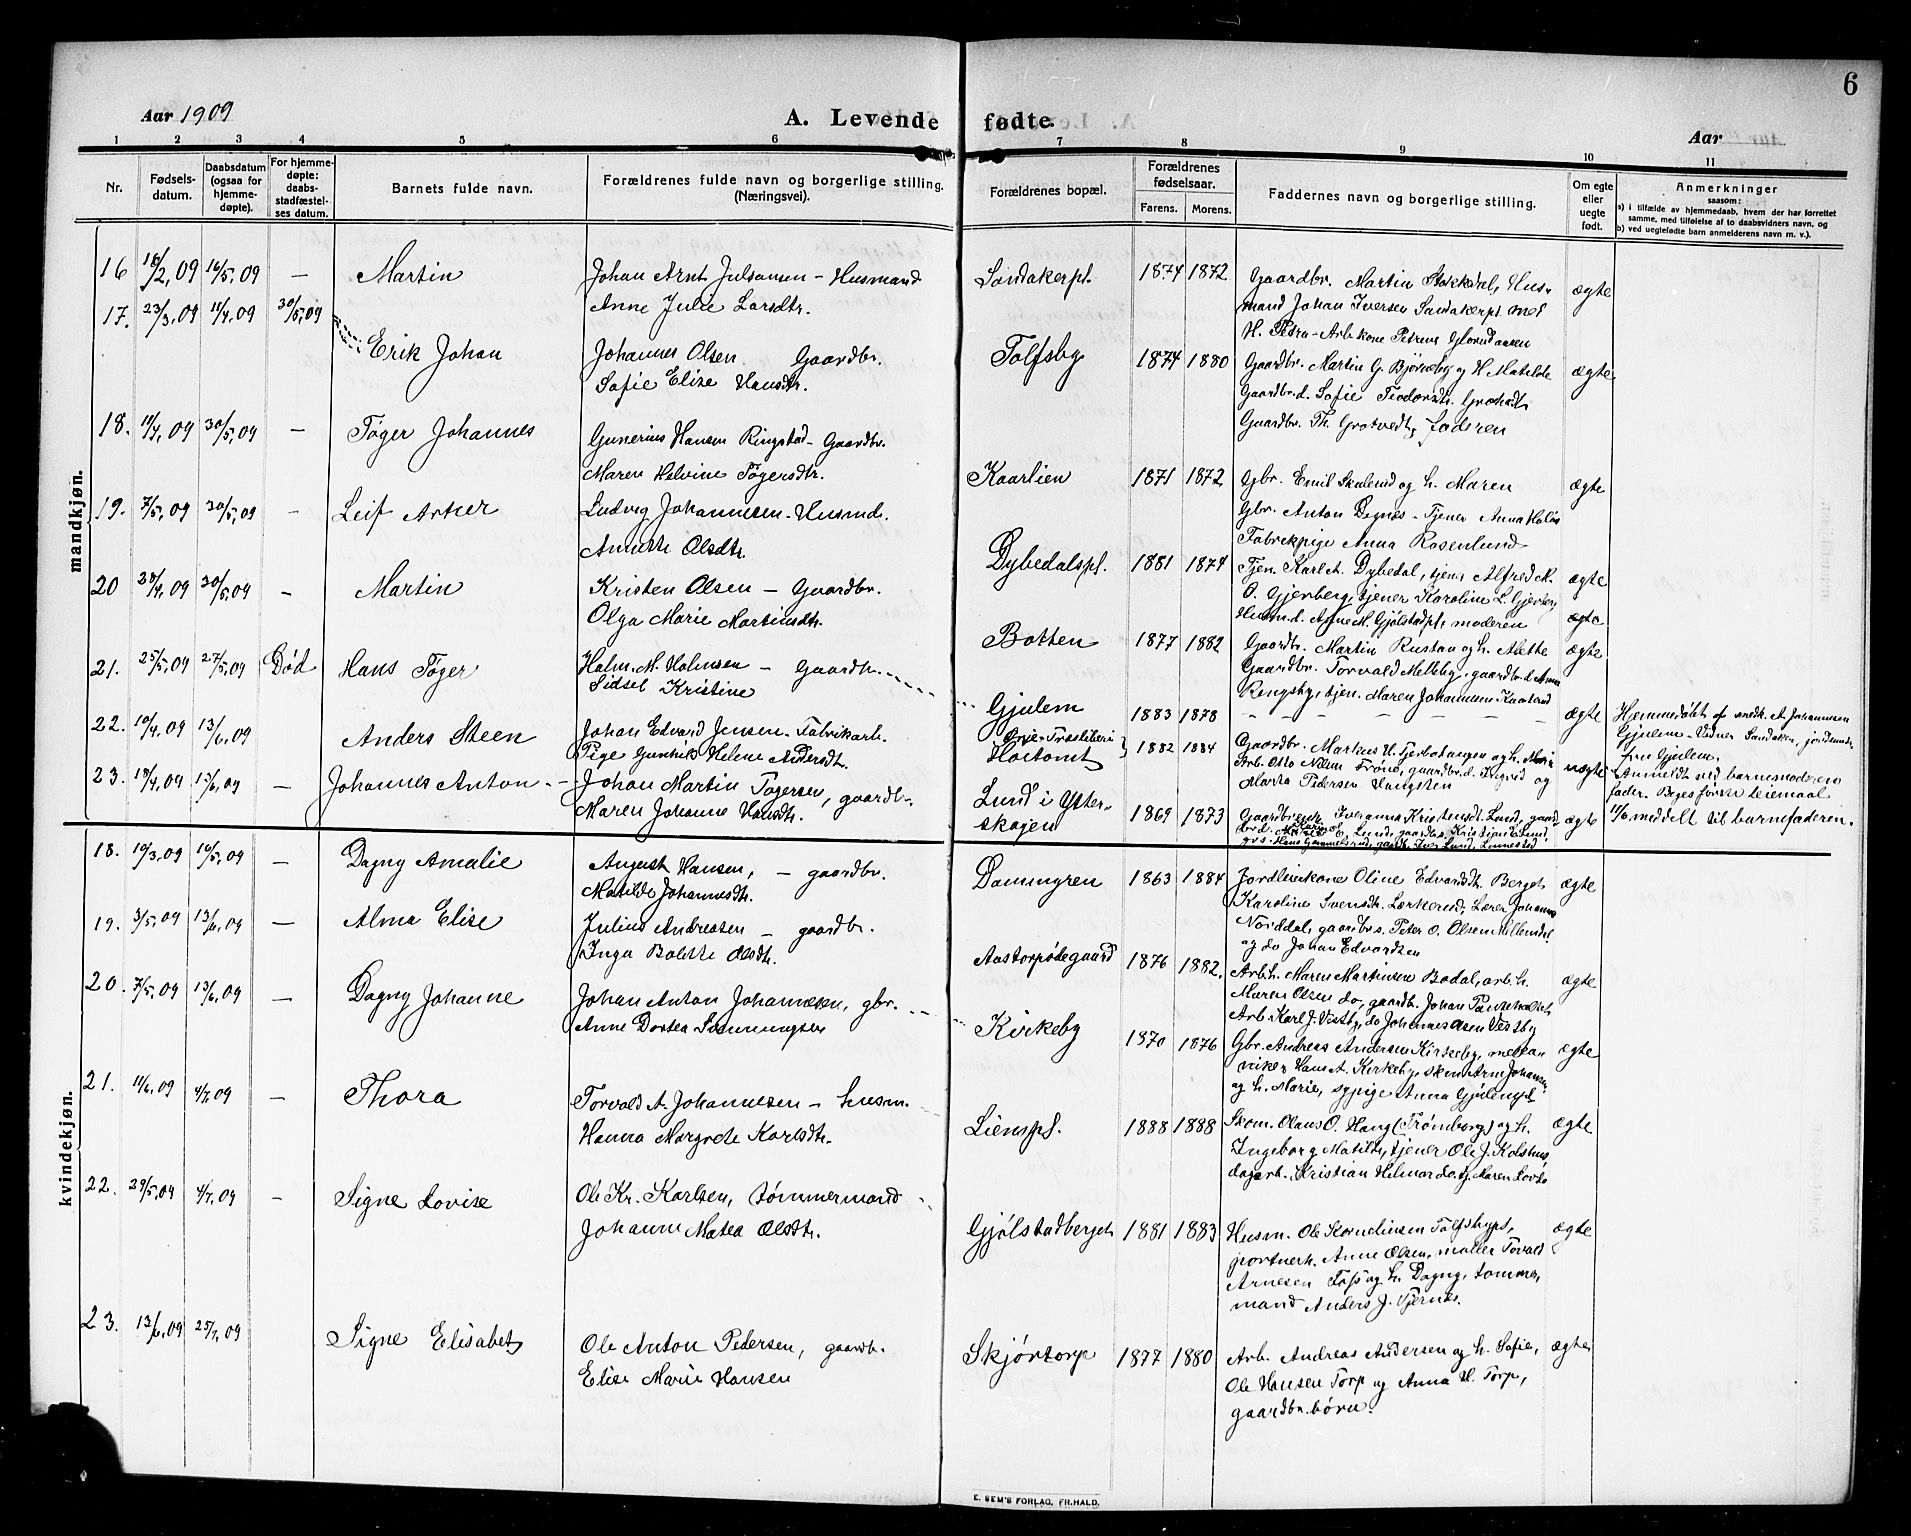 6
Aar 1909
A. Levende fødte.
Aar
1 2 3 4 5 6 7 8 9 10 11
Nr.
Fødsels-
datum.
Daabsdatum
(ogsaa for
hjemme-
døpte).
For hjemme-
døpte:
daabs-
stadfæstel-
ses datum.
Barnets fulde navn.
Forældrenes fulde navn og borgerlige stilling.
(Næringsvei).
Forældrenes bopæl.
Forældrenes
fødselsaar.
Farens. Morens.
Faddernes navn og borgerlige stilling.
Om egte
eller
uegte
født.
Anmerkninger
saasom:
a) i tilfælde av hjemmedaab, hvem der har forrettet
samme, med tilføielse af to daabsvidners navn, og
b) ved uegtefødte barn anmelderens navn m. v.).
mandkjøn.
16 18/2,09 16/5,09 — Martin
Johan Arnt Julsamen – Husmand
Anne Julie Larsdtr.
Sandakerpl. 1874 1872
Gaardbr. Martin Stokkdal, Hus-
mand Johan Iversen Sandakerpl. med
ægte
17. 23/3,09 11/4,09 30/5,09
Erik Johan
Johannes Olsen Gaardbr.
Sofie Elise Hansdtr.
Tolfsby 1874 1880
Gaardbr. Martin G. Bjørneby og H. Matilde
Gaardbr.d. Sofie
Gaardbr. Th. Grotvedt, faderen
ægte
18. 30/5,09 — Tøger Johannes
Gunerius Hansen Ringstad – Gaardbr.
Maren Helvine Tøgersdtr.
Kaarlien 1871 1872
Gbr. Emil Skulerud og h. Maren
Gbr. Anton Degnes – Tjener Anna
Fabrikpige Anna Rosenlund
ægte
19. 7/5,09 30/5,09 — Leif Arker
Ludvig Johannesen – Husmd.
Annette Olsdtr.
Dybedalspl. 1881 1874
Tjen. Karl A. Dybedal, tjen. Alfred M.
O. Gjerberg, tjener Karoline L. Gjerberg,
Husm.d. Agne M. Gjølstadpl., moderen
ægte
ægte
20 30/5,09 — Martin
Kristen Olsen – Gaardbr.
Olga Marie Martinsdtr.
Botten 1877 1882
Gaardbr. Martin Rustan og h. Alette
Gaardbr. Torvald Melleby, gaardbr.d. Anna
Ringsby, tjen. Maren Johannesen
ægte
21. 25/5,09 27/5,09 Død Hans Tøger
Halm. M. Halmsen – Gaardbr.
Sidsel Kristine
Gjulem 1883 1878 — — — — — — ægte
Hjemmedøbt af A. Johannesen
Gjulem – Vidner Sandaker, jordmor
fru Gjulem.
22. 10/4,09 13/6,09 Anders Steen
Johan Edvard Jensen – Fabrikarb.
Pige Gunhild Helene Andersdt.
1882 1884
Arb. Otto Frone, gaardbr.d. Ingrid og
Marta Pedersen Haugsten
uægte
Anmeldt ved barnemoderens
fader. Beges første leiemaal
11/6 meddelt til barnefaderen.
23. 18/4,09 13/6,09 — Johannes Anton
Johan Martin Tøgersen, gaardbr.
Maren Johanne Hansdtr.
Lund i Ytter-
skogen 1869 1873
ægte
kvindekjøn.
18. 19/3,09 16/5,09 — Dagny Amalie
August Hansen, – gaardbr.
Matilde Johannesdtr.
Dammyren 1863 1884
Jordleierkone Oline Edvardsdt. Berget
Karoline Svensdtr. Lerkerud, Lærer Johannes
Norddal, gaardbr.s. Peter O. Olsen
og do Johan Edvardsen
ægte
19. 3/5,09 13/6,09 — Alma Elise
Julius Andreasen – gaardbr.
Inga Bolette Olsdtr.
Aastorpødegaard 1876 1882.
Arb.h. Maren Martinsen Bodal, arb.h.
Maren Olsen do, gaardb. Johan
Arb. Karl J. Vestby, do Johannes Olsen Vestby
ægte
20. 7/5,09 13/6,09 — Dagny Johanne
Johan Anton Johannesen, gbr.
Anne Dortea Simmingsen
Kirkeby 1870 1876
Gbr. Andreas Andersen Kirkeby, meka-
niker Hans A. Kirkeby, Arne Johansen
og h. Marie, sypige Anna Gjulempl.
ægte
21. 11/6,09 4/7,09 — Thora
Torvald A. Johannesen – husm.
Hanna Margrete Karlsdtr.
Lienspl. 1888 1888
Skom. Olaus O. Haug (Trømborg) og h.
Ingeborg Matilde, tjener Ole J. Kolshus
dagarb. Kristian Hilmar do. tj. Maren
ægte
22. 29/5,09 4/7,09 — Signe Lovise
Ole Kr. Karlsen, tømmermand
Johanne Matea Olsdtr.
Gjølstadberget 1881 1883
Husm. Ole Kornelinsen Tolfsbypl.,
portnerk. Anne Olsen, møller Torvald
Arnesen og h. Dagny, tømmer-
mand Anders J. Tjernes.
ægte
23. 13/6,09 25/7,09 Signe Elisabet
Ole Anton Pedersen, gaardbr.
Elise Marie Hansen
Skjørtorp 1877 1880
Arb. Andreas Andersen og h. Sofie,
Ole Hansen Torp og Anna H. Torp,
gaardbr. børn.
ægte
E. SEM'S FORLAG, FR.HALD.